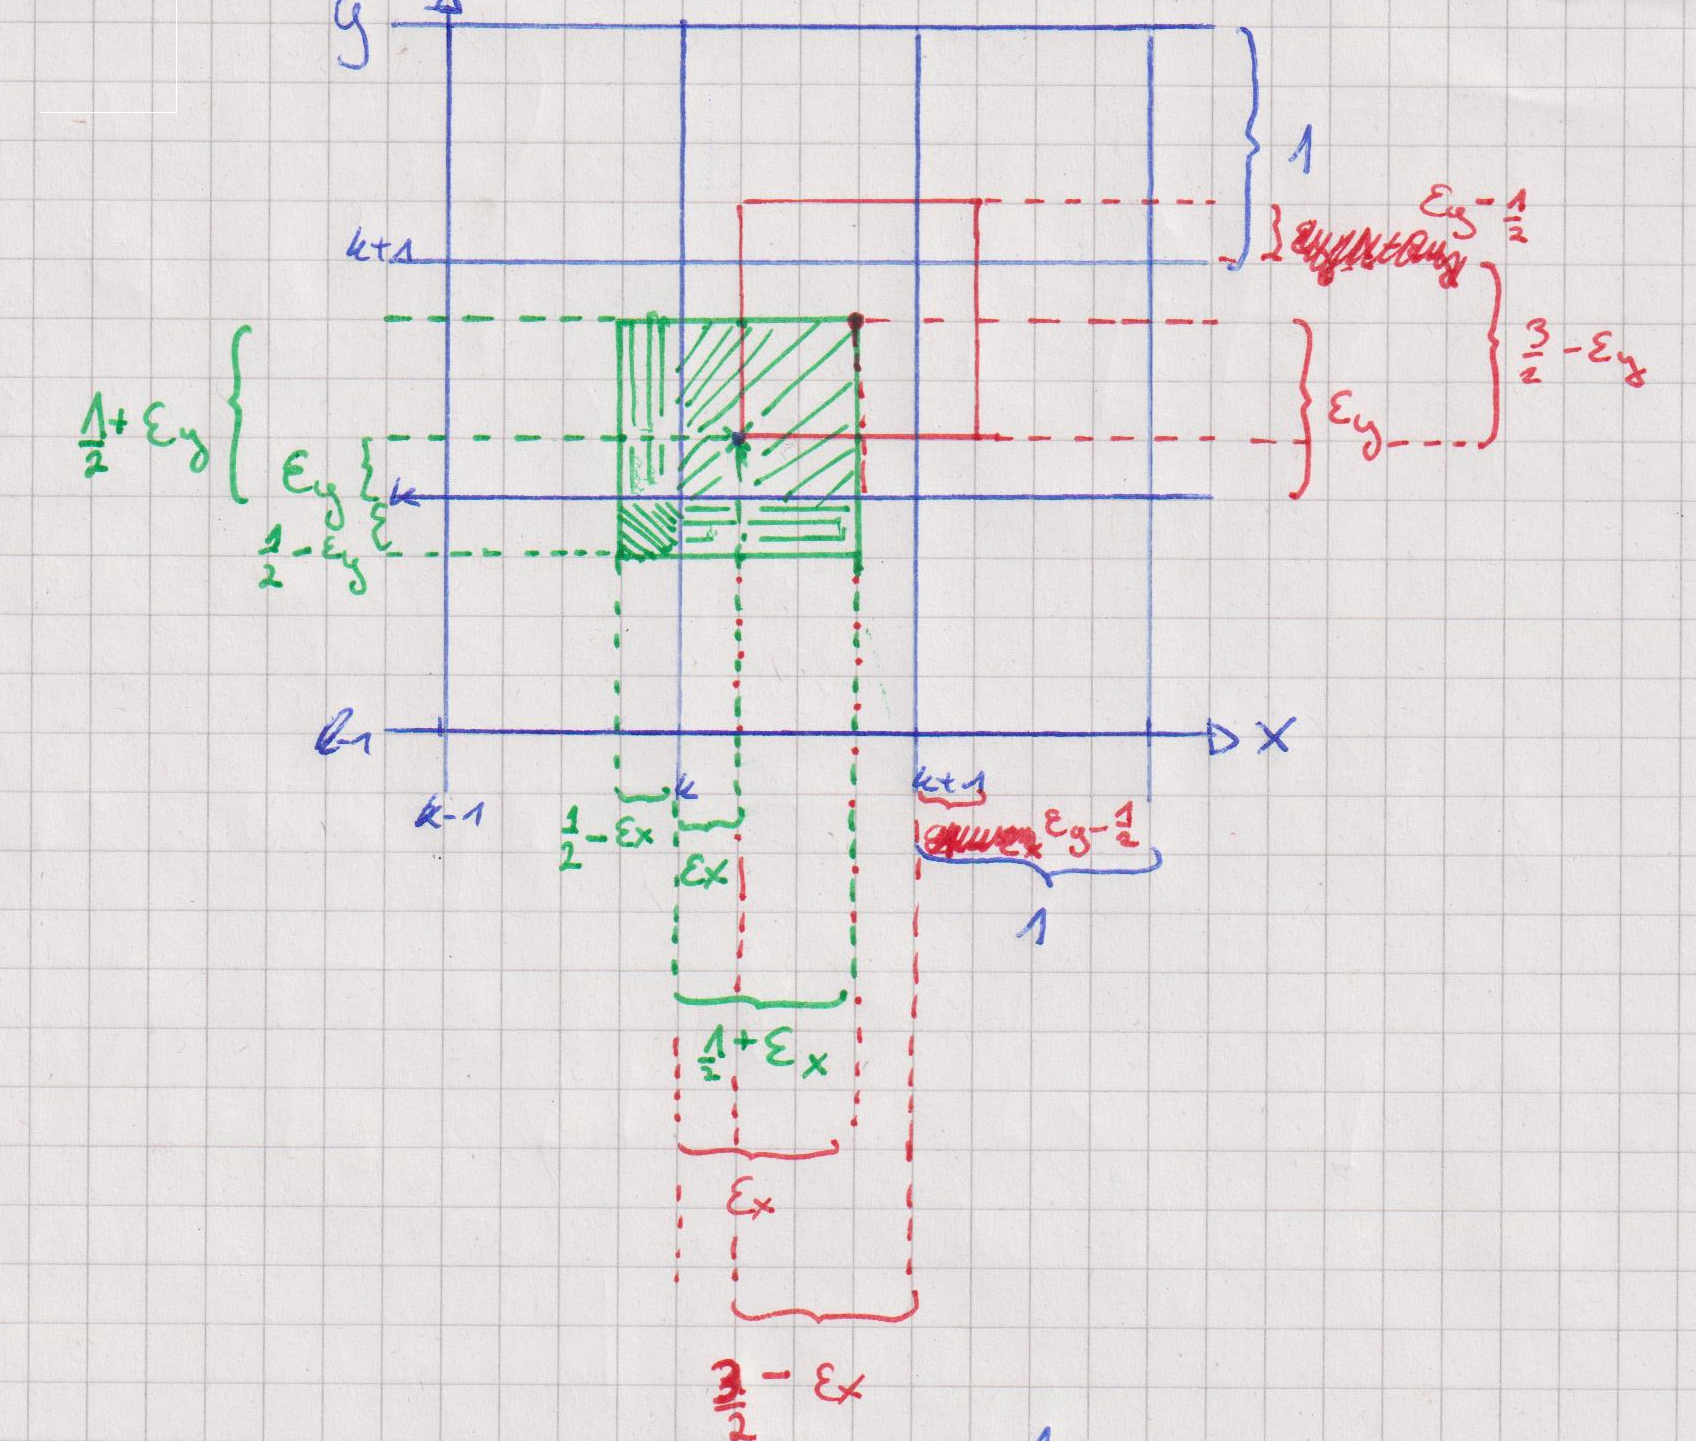 y
1
εy - 1/2
k+1
3/2 - εy
1/2 + εy
εy
εy
k
1/2 - εy
k-1
x
k
k+1
k-1
1/2 - εx
εy - 1/2
εx
1
1/2 + εx
εx
3/2 - εx